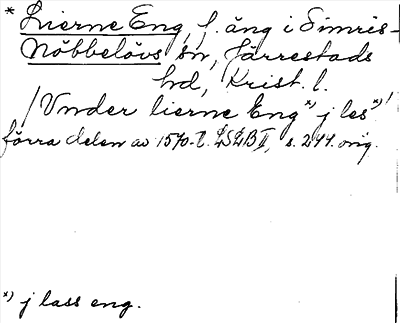 * Lierne Eng, f. äng i Simris-
Nöbbelövs sn, Järrestads
hd, Krist. l.
/Vnder lierne Eng*) j les*)/
förra delen av 1570-t. LSLB II, s. 244. orig.
*) j lass eng.